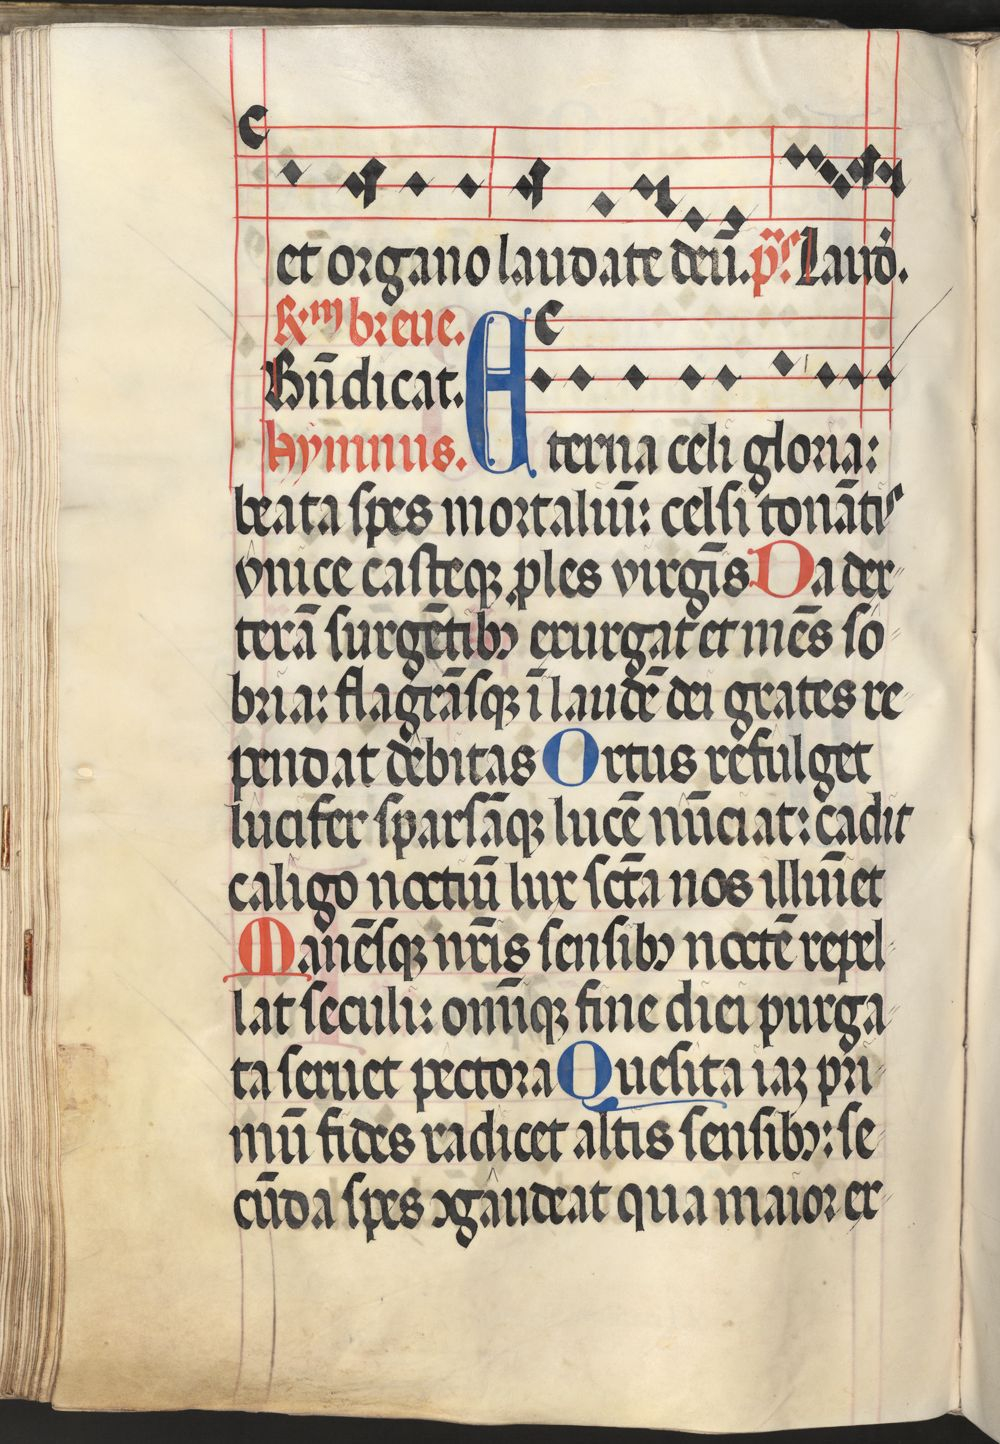 et organo laudate deū. ps̄. Laud̄.
R.m breue.
Bn̄dicat. E
hymnus. terna celi gloria:
beata spes mortaliū: celsi tonātis
vnice casteqꝫ ꝓles virgīs Da dex
terā surgētibꝰ exurgat et mēs so
bria: flagrāsqꝫ ī laudē dei grates re
pendat debitas Ortus refulget
lucifer sparsāqꝫ lucē nūciat: cadit
caligo noctiū lux sctā nos illuīet
Manēsqꝫ nr̄is sensibꝰ noctē repel
lat seculi: omīqꝫ fine diei purga
ta seruet pectora Quesita iaꝫ pri
mū fides radicet altis sensibꝰ: se
cūda spes ꝯgaudeat qua maior ex